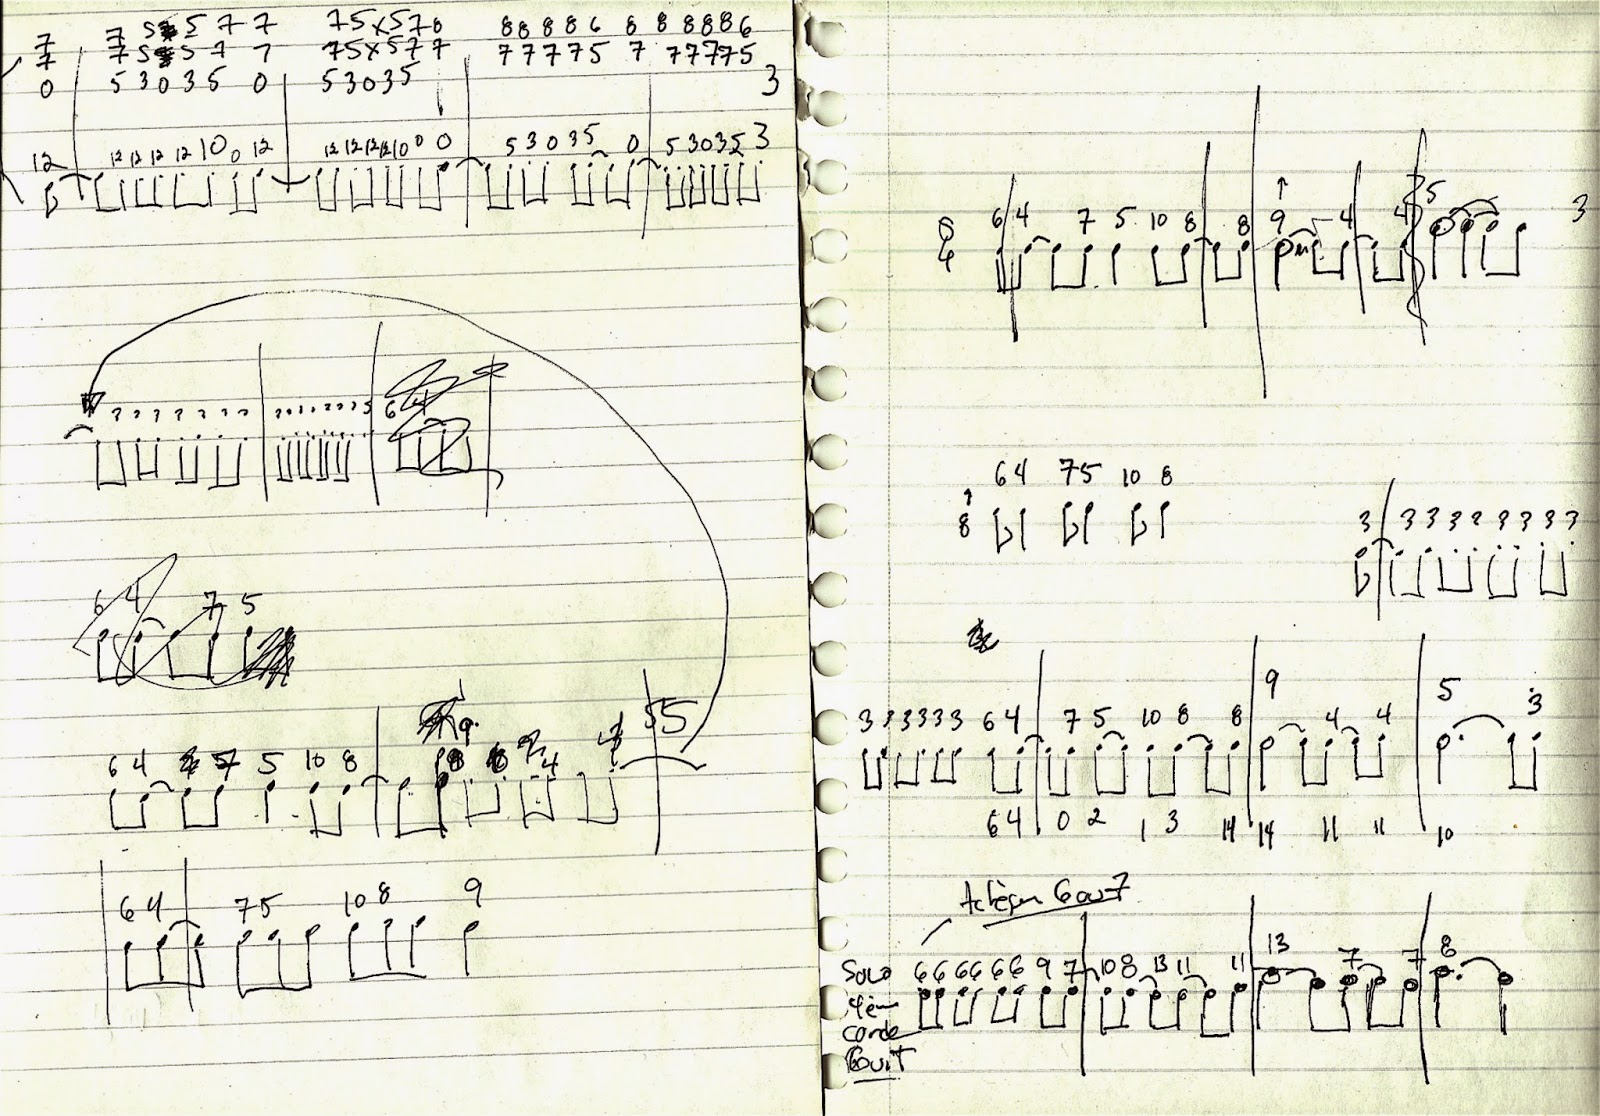 7 7 5 5 7 7 7 5 x 5 7 8 8 8 8 8 6 8 8 8 8 8 6
7 7 5 5 7 7 7 5 x 5 7 7 7 7 7 7 5 7 7 7 7 7 5
0 5 3 0 3 5 0 5 3 0 3 5 3
12 12 12 12 12 10 0 12 12 12 12 12 10 0 0 5 3 0 3 5 0 5 3 0 3 5 3
6 4
6 4 7 5
6 4 7 5 10 8 9 4 5
6 4 7 5 10 8 9
6 4 7 5 10 8 8 9 4 4 5 3
6 4 7 5 10 8
8
3 3 3 3 3 3 3 3 3
9 5
3 3 3 3 3 3 6 4 7 5 10 8 8 4 4 3
6 4 0 2 1 3 14 14 11 11 10
6 ou 7
Solo 6 6 6 6 6 6 9 7 10 8 13 11 11 13 7 7 8
corde